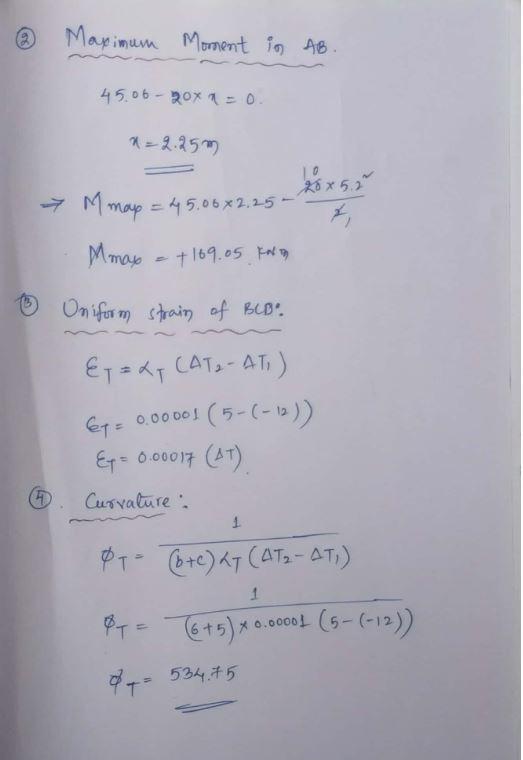 ② Maximum Moment in AB.
45.06 - 20 × x = 0.
x = 2.25m
→ M max = 45.06 × 2.25 - 10 20 × 5.2² / 2,
M max = +169.05 kNm
③ Uniform strain of BCD:
ET = αT (ΔT2 - ΔT1)
ET = 0.00001 (5-(-12))
ET = 0.00017 (ΔT)
④. Curvature:
ØT = 1 / (b+c) αT (ΔT2 - ΔT1)
ØT = 1 / (6+5) × 0.00001 (5-(-12))
ØT = 534.75